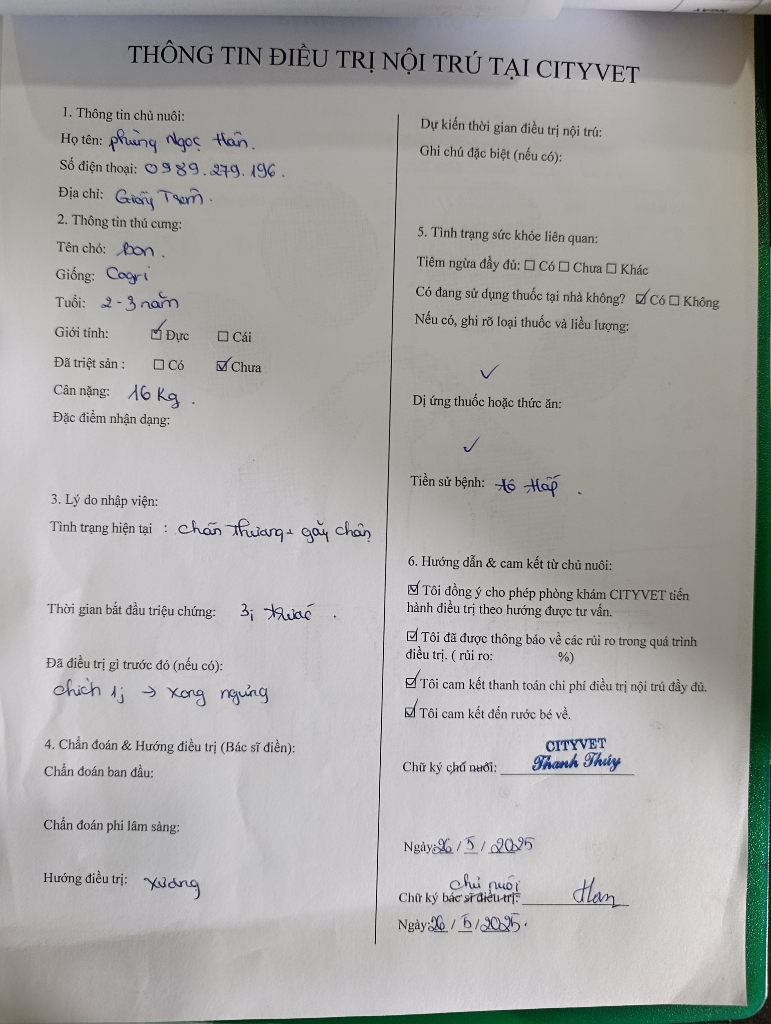 THÔNG TIN ĐIỀU TRỊ NỘI TRÚ TẠI CITYVET
1. Thông tin chủ nuôi:
Họ tên: phùng Ngọc Hân.
Số điện thoại: 0989.279.196.
Địa chỉ: Giồng Trôm.
2. Thông tin thú cưng:
Tên chó: bon.
Giống: Cogri
Tuổi: 2-3 năm
Giới tính: ☑ Đực ☐ Cái
Đã triệt sản : ☐ Có ☑ Chưa
Cân nặng: 16 Kg.
Đặc điểm nhận dạng:
3. Lý do nhập viện:
Tình trạng hiện tại : chấn thương + gãy chân
Thời gian bắt đầu triệu chứng: 3j trước.
Đã điều trị gì trước đó (nếu có):
chích 1j → xong ngưng
4. Chẩn đoán & Hướng điều trị (Bác sĩ điền):
Chẩn đoán ban đầu:
Chẩn đoán phi lâm sàng:
Hướng điều trị: xương
Dự kiến thời gian điều trị nội trú:
Ghi chú đặc biệt (nếu có):
5. Tình trạng sức khỏe liên quan:
Tiêm ngừa đầy đủ: ☐ Có ☐ Chưa ☐ Khác
Có đang sử dụng thuốc tại nhà không? ☑ Có ☐ Không
Nếu có, ghi rõ loại thuốc và liều lượng:
✓
Dị ứng thuốc hoặc thức ăn:
✓
Tiền sử bệnh: hô hấp.
6. Hướng dẫn & cam kết từ chủ nuôi:
☑ Tôi đồng ý cho phép phòng khám CITYVET tiến
hành điều trị theo hướng được tư vấn.
☑ Tôi đã được thông báo về các rủi ro trong quá trình
điều trị. ( rủi ro: %)
☑ Tôi cam kết thanh toán chi phí điều trị nội trú đầy đủ.
☑ Tôi cam kết đến rước bé về.
CITYVET
Chữ ký chủ nuôi: Thanh Thúy
Ngày: 26 / 5 / 2025
chủ nuôi
Chữ ký bác sĩ điều trị: Han
Ngày: 26 / 5 / 2025.